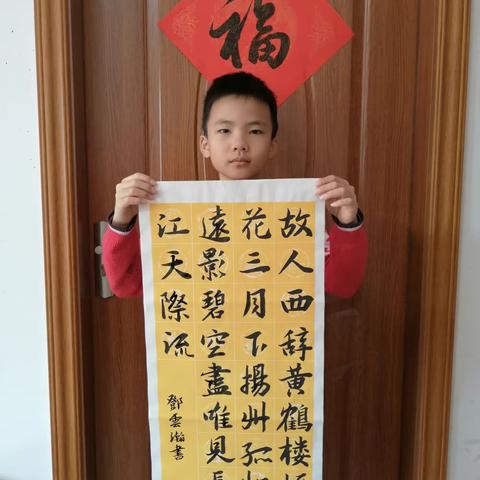 福
故人西辞黄鶴楼
花三月下揚州孤
遠影碧空盡唯見長
江天際流
鄧雲瀚書